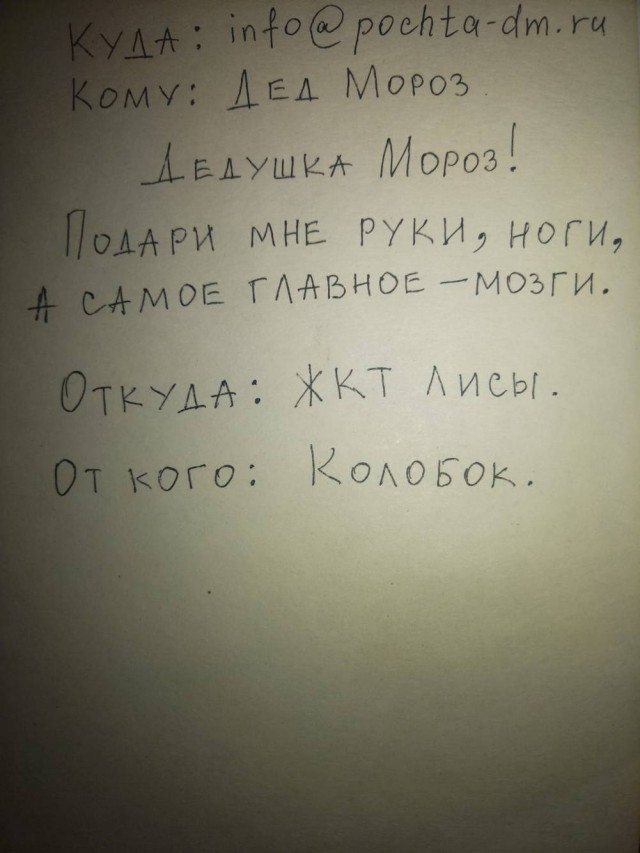 Куда: info@pochta-dm.ru
Кому: Дед Мороз
Дедушка Мороз!
Подари мне руки, ноги,
а самое главное – мозги.
Откуда: ЖКТ лисы.
От кого: Колобок.